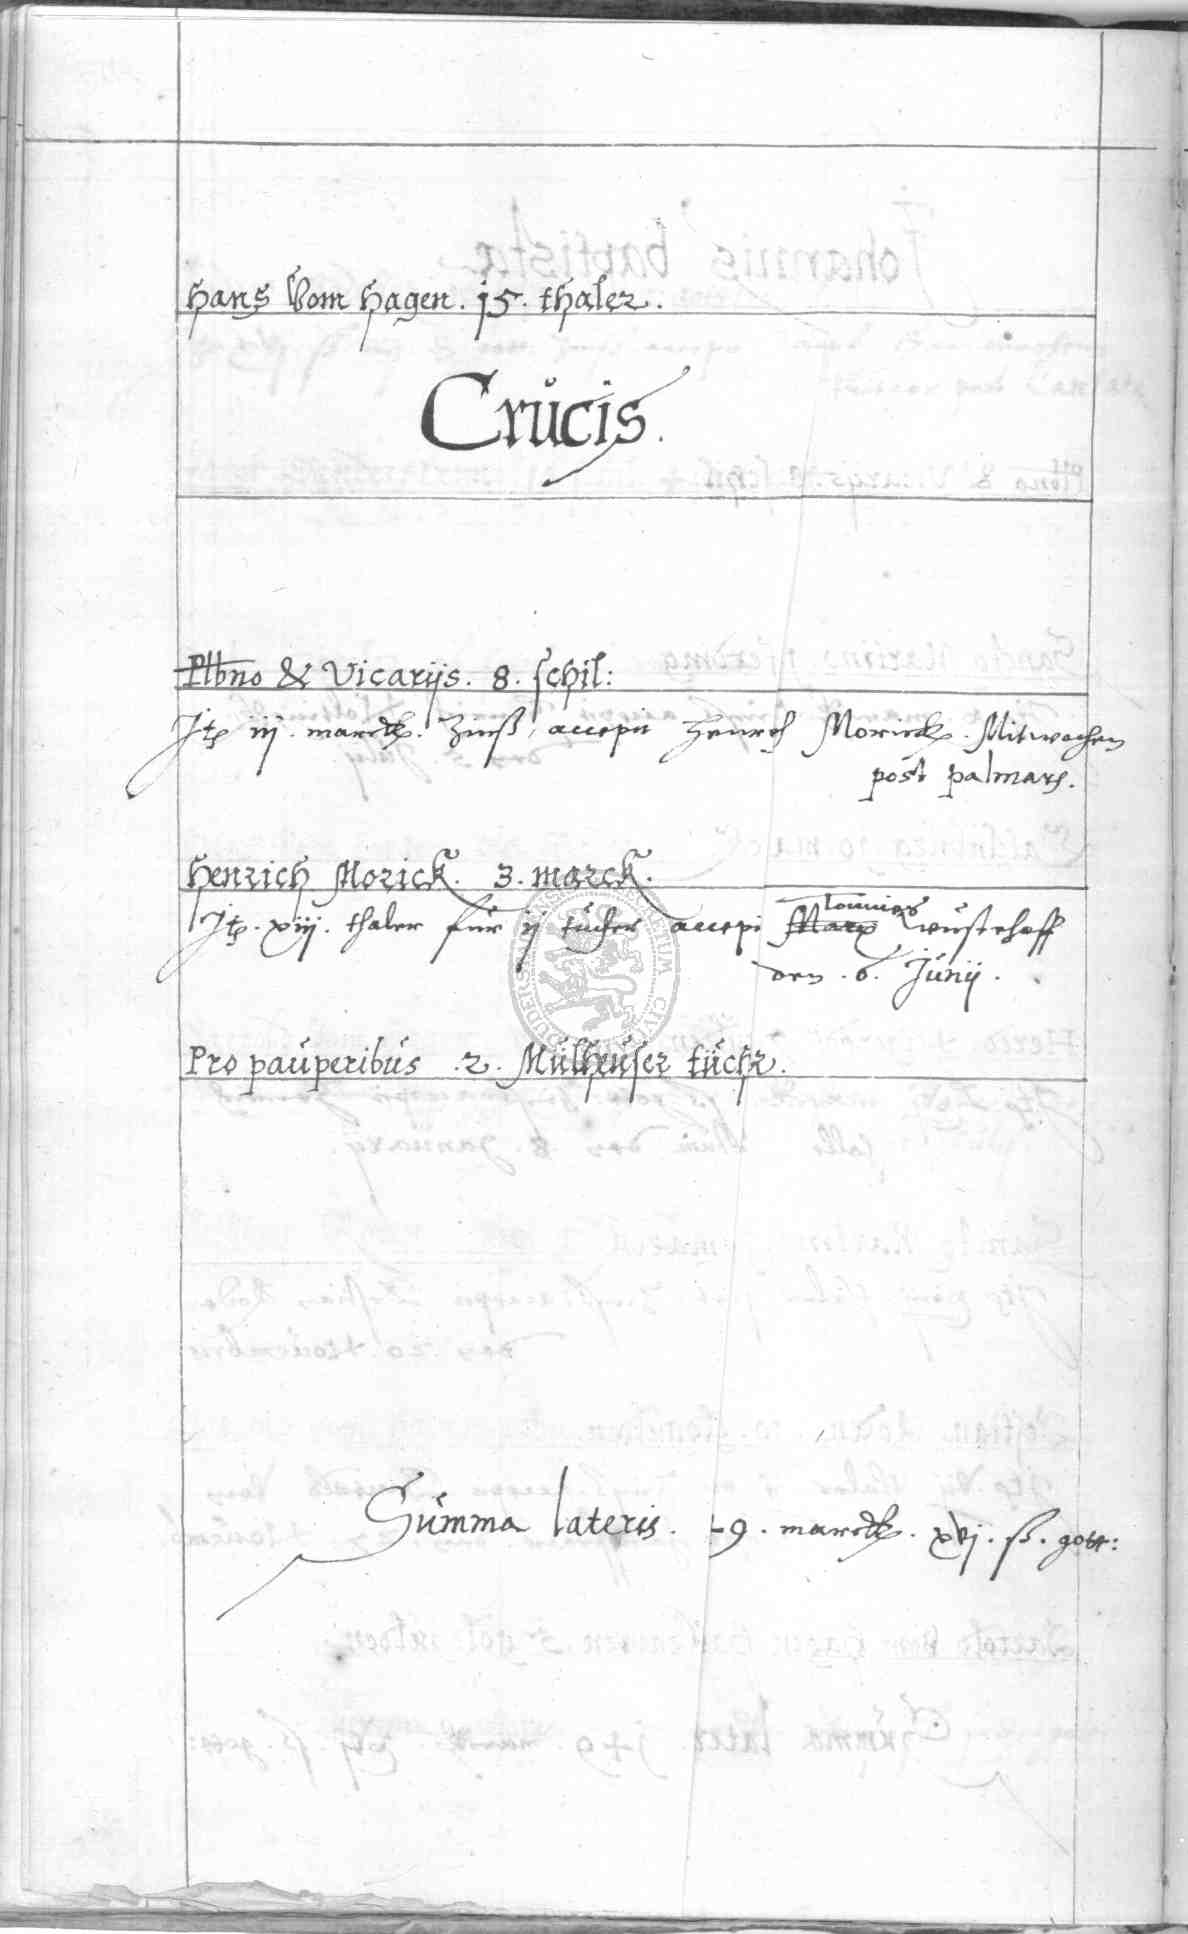 Hans Vom Hagen. 15. thaler.
Crucis.
Plbno & Vicarijs. 8. schil:
Itp iij. marck. Zinß accepit Henrich Morick. Mitwochen
post palmarum.
Henrich Morick. 3. marck.
Itp. xiij. thaler für ij tücher accepi Tonnies wüstehoff
den .6. Junij.
Pro pauperibus .2. Mülheuser tücher.
Summa lateris. 49. marck. xvj. ß. gott: